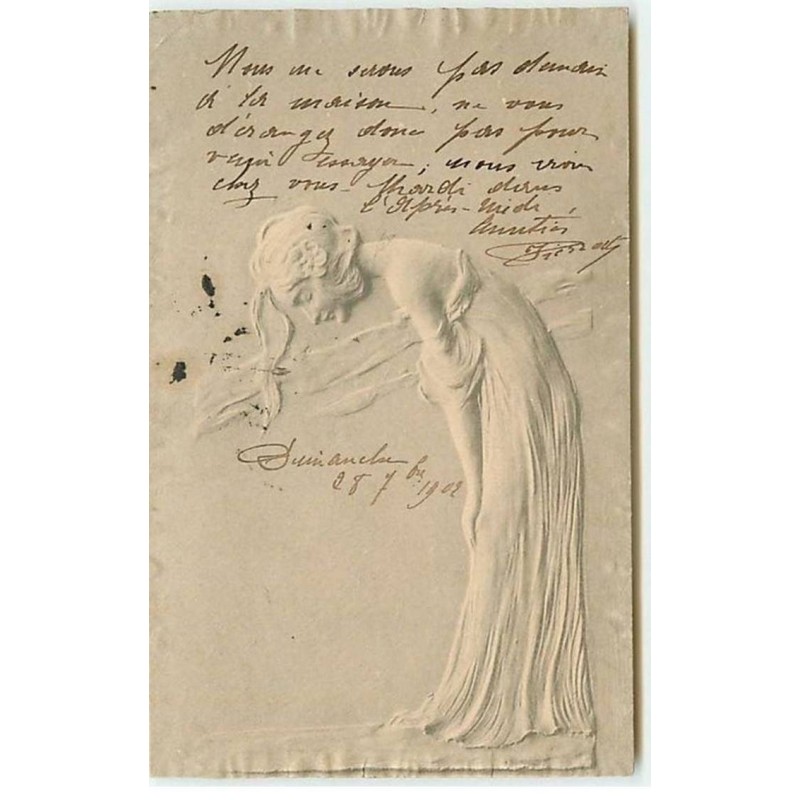 Nous ne serons pas demain
à la maison, ne vous
dérangez donc pas pour
venir essayer; nous irons
chez vous Mardi dans
l'Après-Midi.
Amitiés
Dimanche
28 7bre 1902